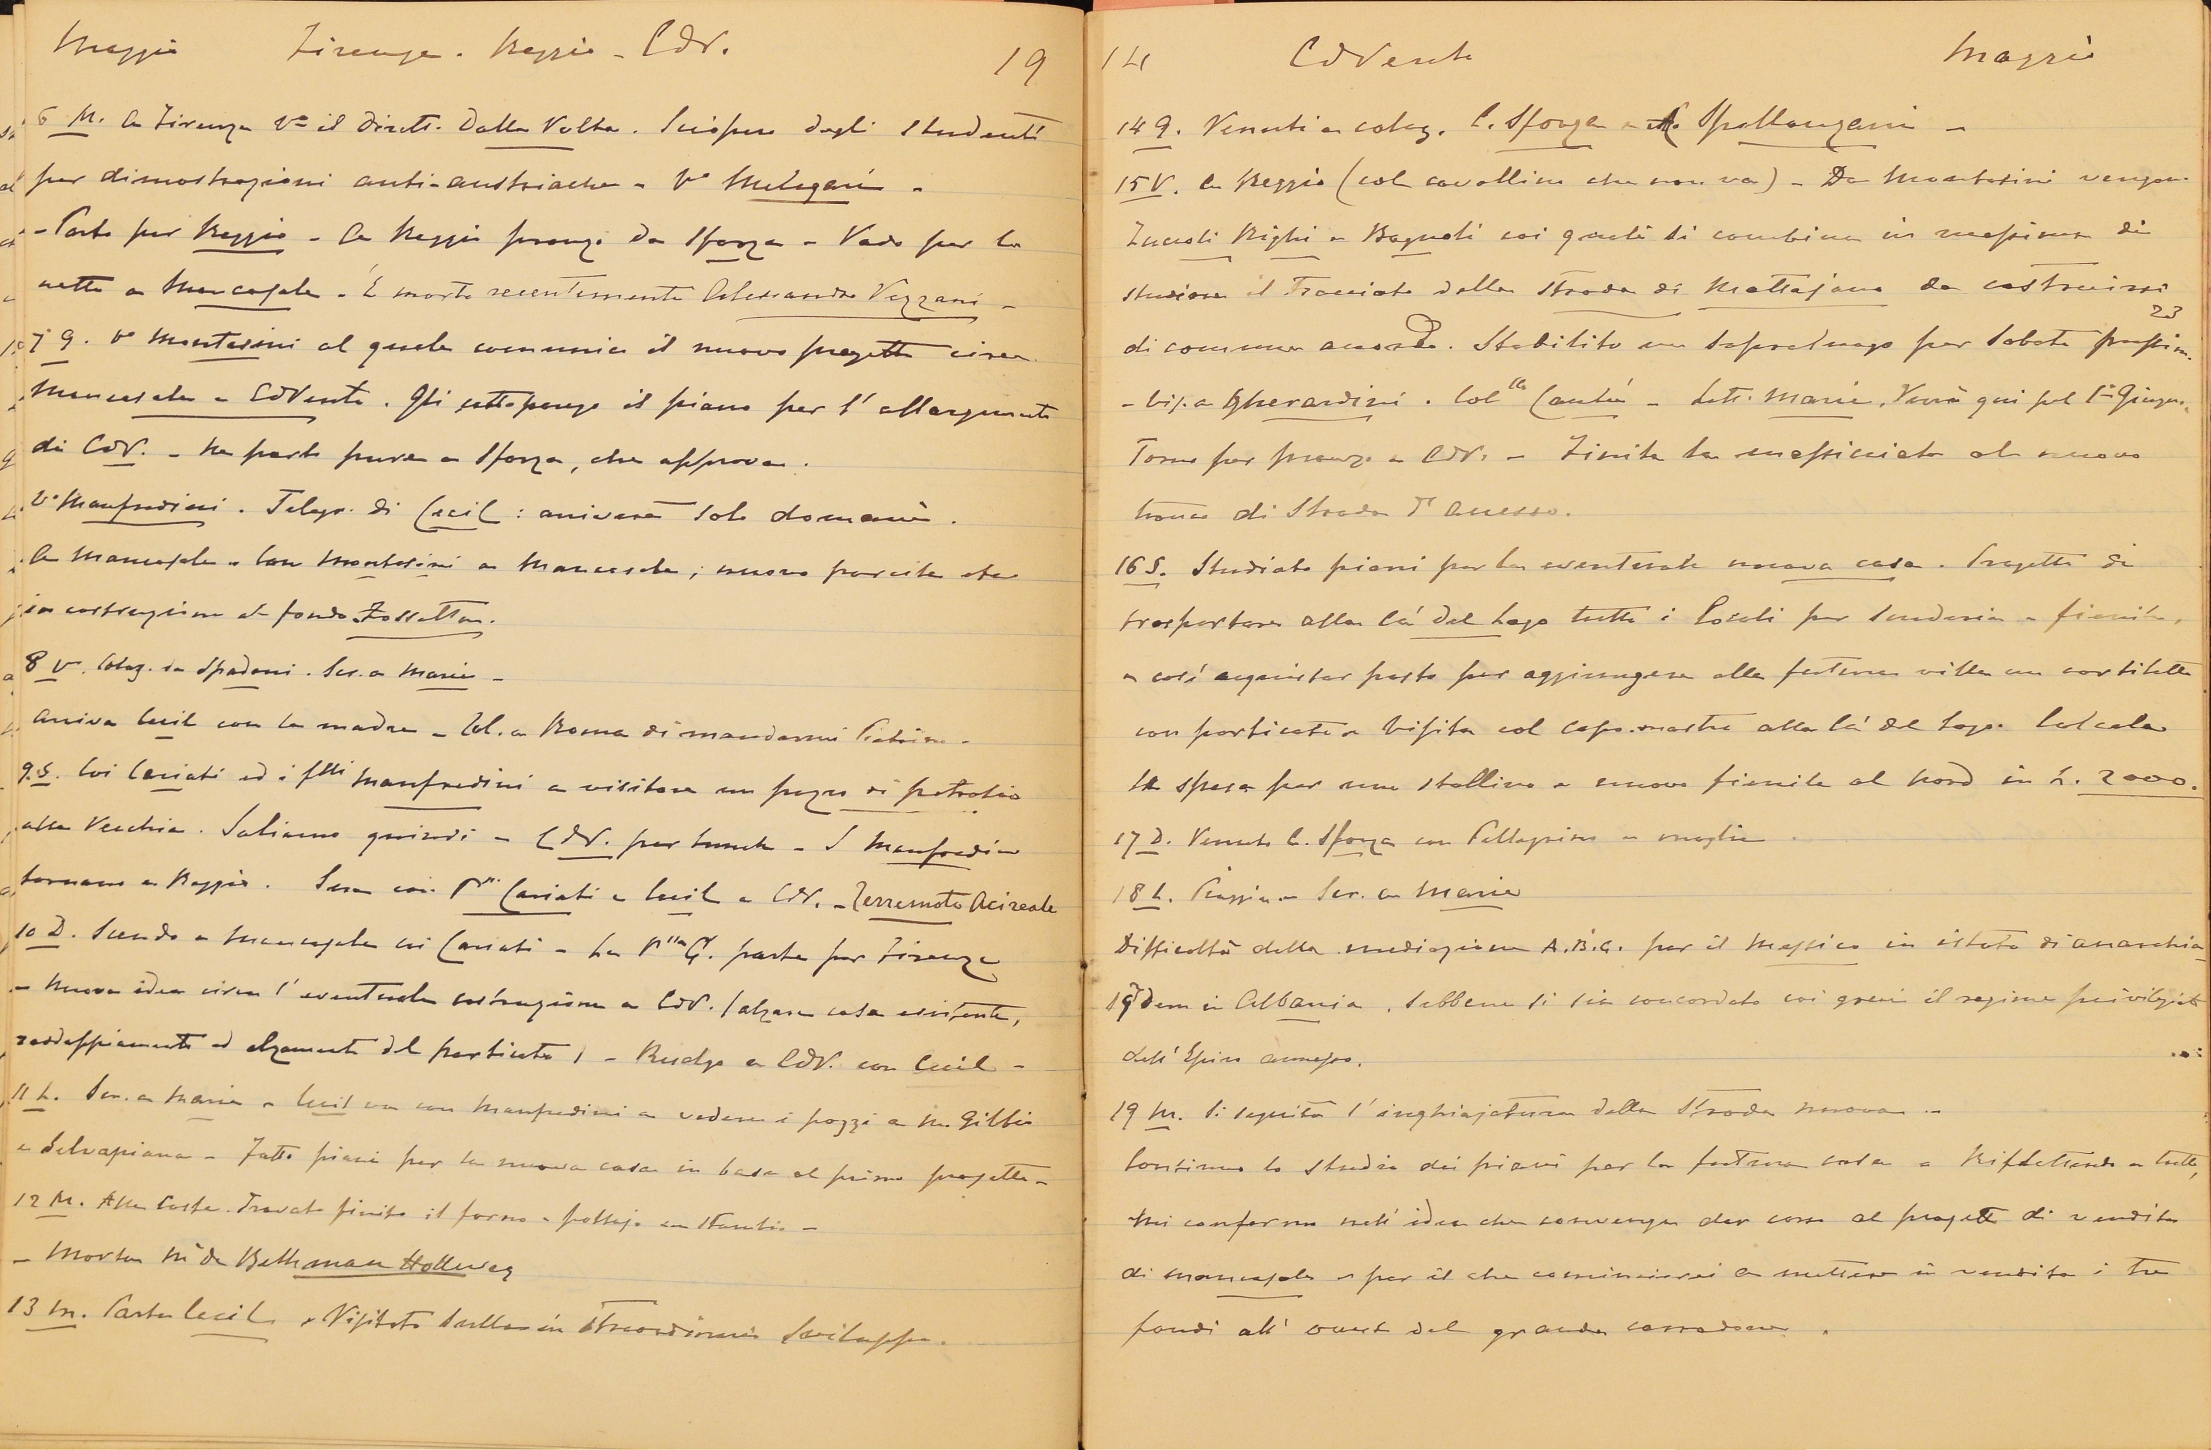 Maggio Firenze - Reggio - CdV. 19
6 M. A Firenze Vo il Dirett. Dalla Volta. Sciopero degli studenti
per dimostrazioni anti-austriache - Vo Melegari -
- Parto per Reggio - A Reggio pranzo da Sforza - Vado per la
notte a Mancasale. È morto recentemente Alessandro Vezzani -
7 G. Vo Montesini al quale comunico il nuovo progetto circa
Mancasale e CdVento. Gli sottopongo il piano per l'allargamento
di CdV. - Ne parlo pure a Sforza, che approva.
Vo Manfredini. Telegr. di Cecil: arriverà solo domani.
A Mancasale - Con Montesini a Mancasale; nuova porcilaia
in costruzione al fondo Fossetta.
8 V. Colaz. da Spadoni. Scr. a Maria -
Arriva Cecil con la madre - Tel. a Roma di mandarmi
9 S. Coi Cariati ed i f.lli Manfredini a visitare un pozzo di petrolio
alla Vecchia. Saliamo quindi a CdV. per lunch - I Manfredini
tornano a Reggio. Sera coi P.ri Cariati e Cecil a CdV. - Terremoto Acireale
10 D. Scendo a Mancasale coi Cariati - La P.ssa G. parte per Firenze
- Nuova idea circa l'eventuale costruzione a CdV. (alzare casa esistente,
raddoppiamento ed alzamento del porticato) - Risalgo a CdV. con Cecil -
11 L. Scr. a Maria - Cecil va con Manfredini a vedere i pozzi a M. Gibbio
e Selvapiana - Fatto piani per la nuova casa in base al primo progetto -
12 M. Alla Costa. Trovato finito il forno e pollajo
- Morta Me de Bethman Hollweg
13 M. Parte Cecil. Visitato Sulla in straordinario sviluppo.
14 CdVento Maggio
14 G. Venuti a colaz. C. Sforza e A. Spallanzani -
15 V. A Reggio (col cavallino che non va) - Da Montesini vengono
Zuccoli Righi e Bagnoli coi quali si combina in massima di
studiare il tracciato della strada di Mattajano da costruirsi
di comune accordo. Stabilito un sopraluogo per Sabato 23 prossim.
- Vis. a Gherardini. Col.llo Cantù - Lett. Maria. Verrà qui pel 1º Giugno.
Torno per pranzo a CdV. - Finita la massicciata al nuovo
tronco di Strada d'accesso.
16 S. Studiato piani per la eventuale nuova casa. Progetto di
trasportare alla Cà del Lago tutti i locali per scuderia e fienile,
e così acquistar posto per aggiungere alla futura villa un cortiletto
con porticato - Visita col capo-mastro alla Cà del Lago. Calcola
la spesa per una stallina e nuovo fienile al Nord in L. 2000.
17 D. Venuto C. Sforza con Pellegrino e moglie.
18 L. Pioggia - Scr. a Maria
Difficoltà della mediazione A.B.C. per il Messico in istato di anarchia
Idem in Albania, sebbene si sia concordato coi greci il regime privilegiato
dell'Epiro annesso.
19 M. Si seguita l'inghiajatura della strada nuova -
Continuo lo studio dei piani per la futura casa - Riflettendo a tutto,
mi confermo nell'idea che convenga dar corso al progetto di vendita
di Mancasale - per il che comincierei a mettere in vendita i tre
fondi all'ovest del grande corradore.